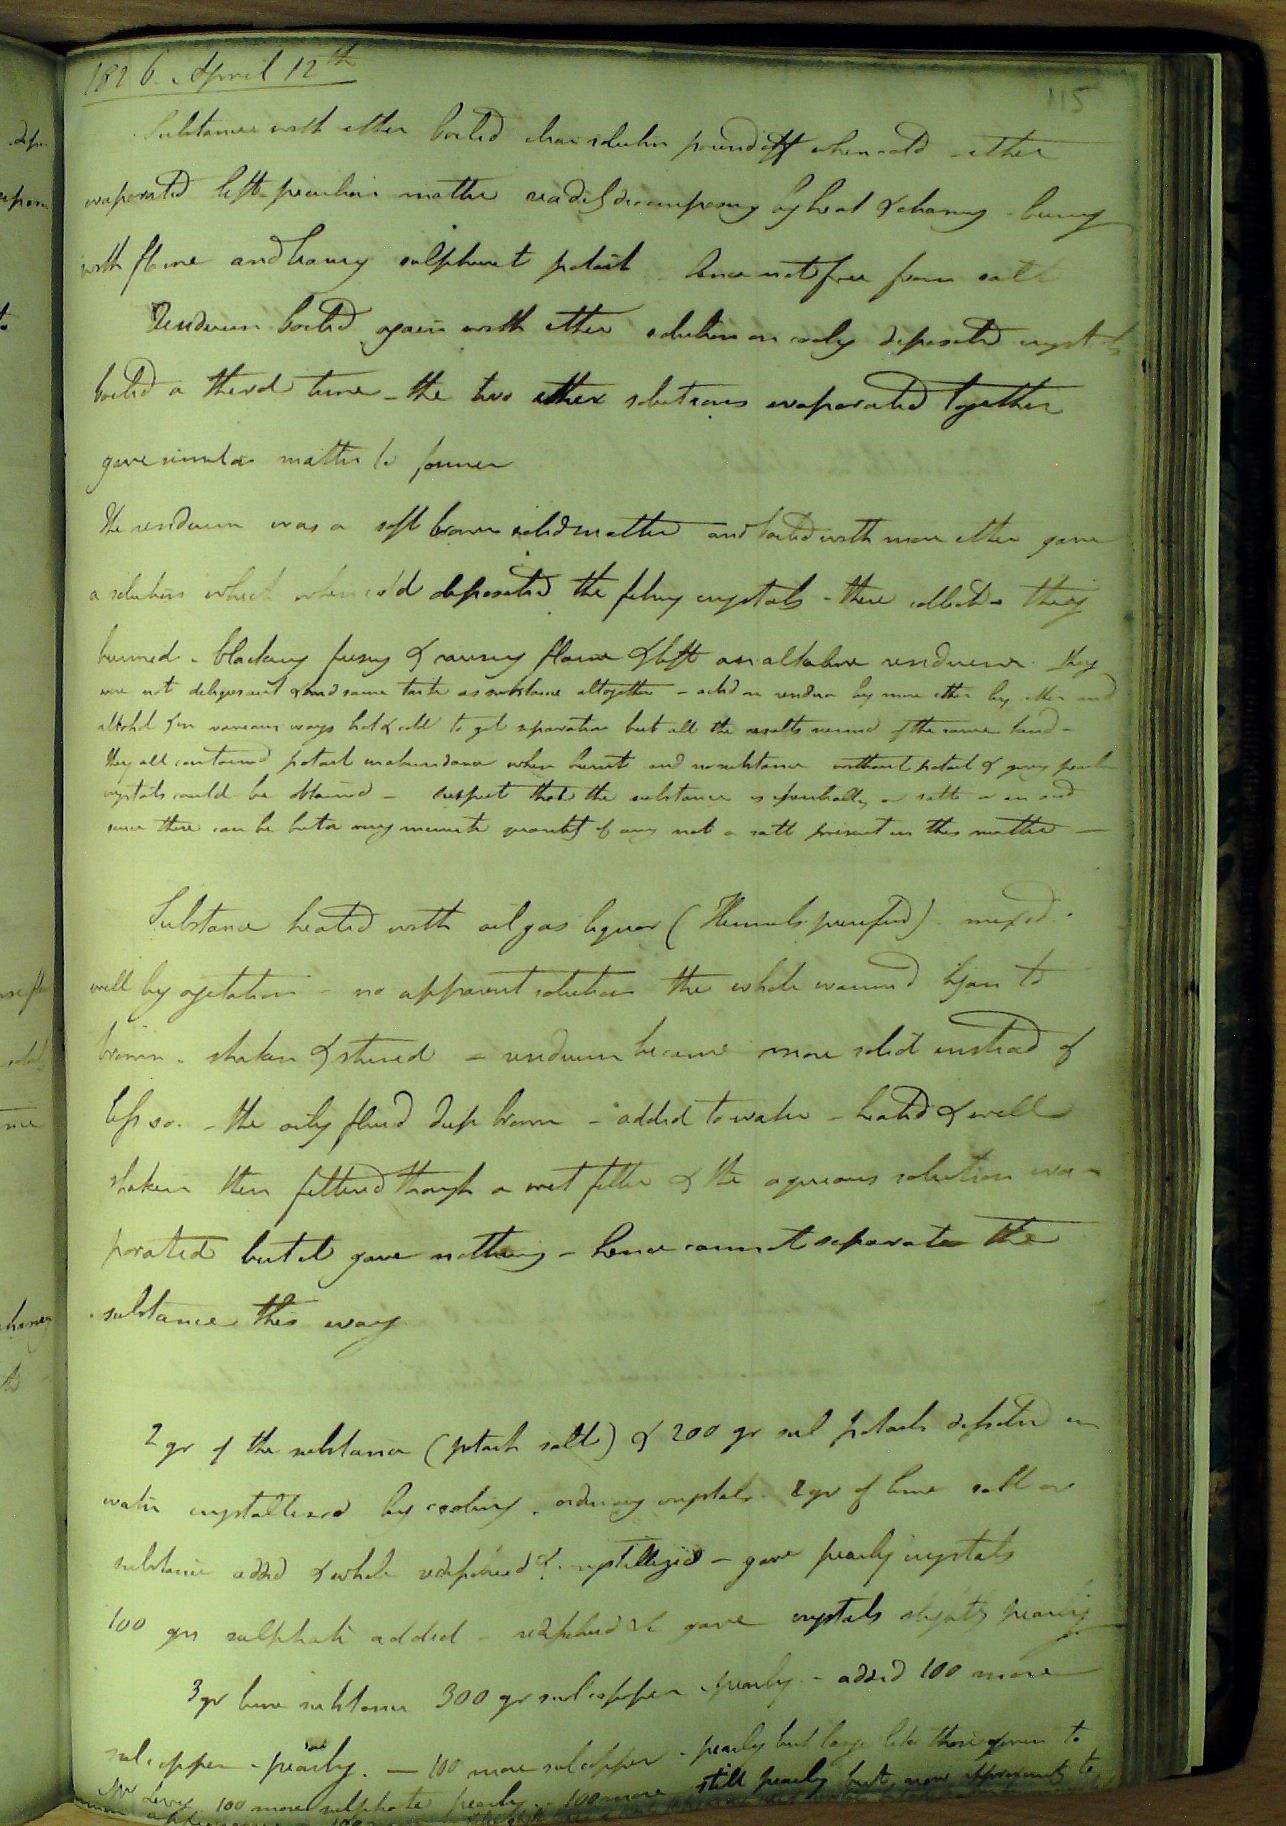 1826. April 12th
115
Substance with ether boiled clear solution poured off when cold - ether
evaporated left peculiar matter readily decomposing by heat & charring - burning
with flame and leaving sulphuret potash - hence not free from salt
Residuum boiled again with ether solution on cooling deposited crystals
boiled a third time - the two ether solutions evaporated together
gave similar matter to former
The residuum was a soft brown solid matter and boiled with more ether gave
a solution which when cold deposited the filmy crystals - these collected - they
burned - blackening fusing & causing flame & left an alkaline residuum. They
were not deliquescent & had same taste as substance altogether - acted on residuum by more ether by ether and
alcohol & in various ways hot & cold to get separation but all the results seemed of the same kind -
they all contained potash in abundance when burnt and no substance without potash & giving pearly
crystals could be obtained - suspect that the substance is essentially a salt or an acid
since there can be but a very minute quantity of any not a salt present in this matter -
Substance heated with oil gas liquor ( purified) mixed
well by agitation - no apparent solution the whole warmed began to
brown - shaken & stirred - residuum became more solid instead of
less so. - the oily fluid deep brown - added to water - heated & well
shaken then filtered through a wet filter & the aqueous solution eva-
porated but it gave nothing - hence cannot separate the
substance this way
2 gr of the substance (potash salt) & 200 gr sul potash dissolved in
water crystallized by cooling. ordinary crystals. 2 gr of lime salt or
substance added & whole redissolved & crystallized - gave pearly crystals
100 grs sulphate added - redissolved &c gave crystals slightly pearly
3 gr lime substance 300 gr sul copper - pearly - added 100 more
sul copper - pearly. - 100 more sul copper - pearly but large like those given to
100 more sulphate pearly - 100 more still pearly but now approximate to